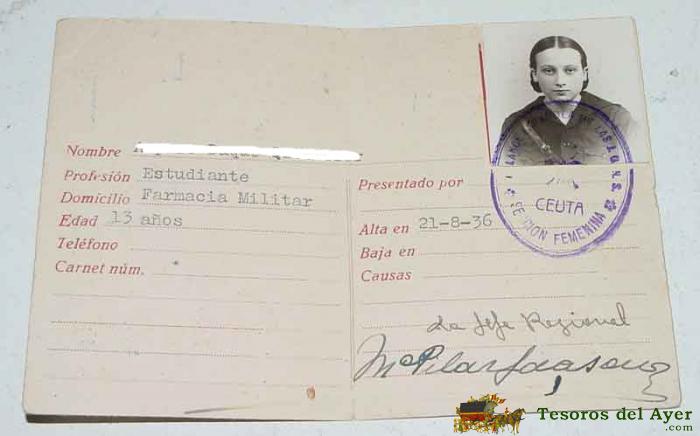 Nombre
Profesión Estudiante
Domicilio Farmacia Militar
Edad 13 años
Teléfono
Carnet núm.
DE LAS J.O.N.S.
CEUTA
SECCION FEMENINA
Presentado por
Alta en 21-8-36
Baja en
Causas
La Jefe Regional
Mª Pilar
Tesoros del Ayer
.com